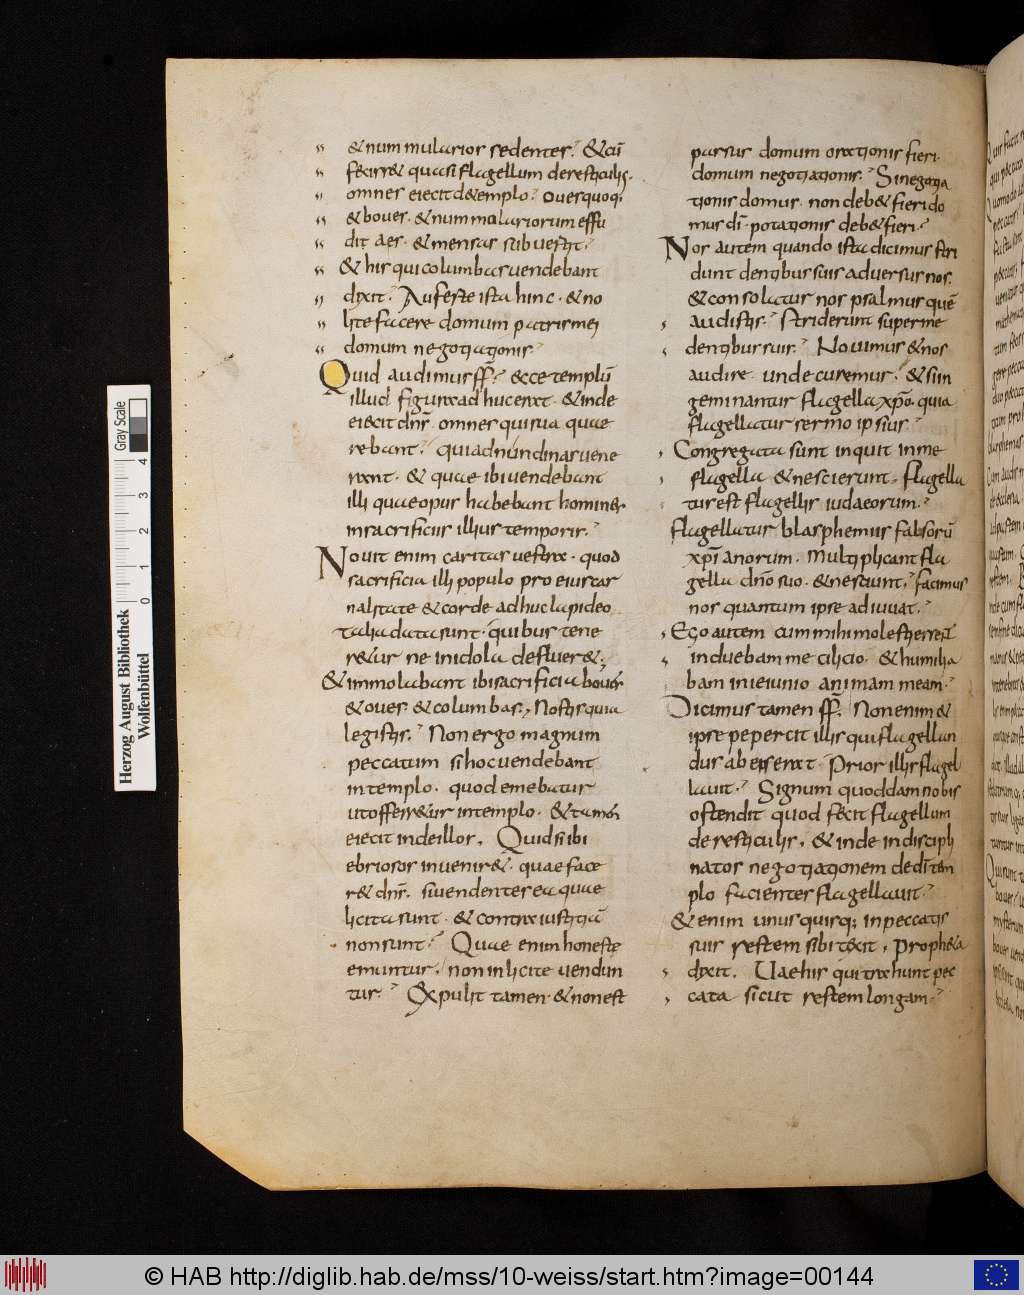 & nummularios sedentes. & cū
fecisset quasi flagellum deresticulis.
omnes eiecit detemplo. ouesquoq;
& boues. & nummulariorum effu
dit aes. & mensas subuertit.
& his qui columbas uendebant
dixit. Auferte ista hinc. & no
lite facere domum patris mei
domum negotiationis.
Quid audimus ff̄. ecce templū
illud figura adhuc erat. & inde
eiecit dn̄s omnes qui sua quae
rebant. qui ad nundinas uene
rant. & quae ibi uendebant
illi quae opus habebant homines
in sacrificiis illius temporis.
Nouit enim caritas uestra. quod
sacrificia illi populo pro eius car
nalitate & corde adhuc lapideo
talia data sunt. quibus tene
retur ne in idola deflueret;
& immolabant ibi sacrificia boues
& oues. & columbas. Nostis quia
legistis. Non ergo magnum
peccatum si hoc uendebant
in templo. quod emebatur
ut offerretur in templo. & tamen
eiecit inde illos. Quid si ibi
ebriosos inueniret. quae face
ret dn̄s. si uendentes ea quae
licita sunt. & contra iustitiā
non sunt. Quae enim honeste
emuntur. non inlicite uendun
tur. Expulit tamen. & non est
passus domum orationis fieri
domum negotiationis. Si negotia
tionis domus. non debet fieri do
mus dī. potationis debet fieri.
Nos autem quando ista dicimus stri
dunt dentibus suis aduersus nos.
& consolatur nos psalmus quē
audistis. Striderunt super me
dentibus suis. Nouimus & nos
audire. unde curemur. & si in
geminantur flagella xp̄o. quia
flagellatur sermo ipsius.
Congregata sunt inquit in me
flagella & nescierunt. Flagella
tus est flagellis iudaeorum.
flagellatur blasphemiis falsorū
xp̄ianorum. Multiplicant fla
gella dn̄o suo. & nesciunt. facimus
nos quantum ipse adiuuat.
Ego autem cum mihi molesti essēt
induebam me cilicio. & humilia
bam in ieiunio animam meam.
Dicimus tamen ff̄. Non enim &
ipse pepercit illis qui flagellan
dus ab eis erat. Prior illis flagel
lauit. Signum quoddam nobis
ostendit quod fecit flagellum
de resticulis. & inde indiscipli
natos negotiationem de dī tem
plo facientes flagellauit.
& enim unus quisq; in peccatis
suis restem sibi texit. Propheta
dixit. Uae his qui trahunt pec
cata sicut restem longam.
Gray Scale
Herzog August Bibliothek
Wolfenbüttel
0 1 2 3 4
© HAB http://diglib.hab.de/mss/10-weiss/start.htm?image=00144